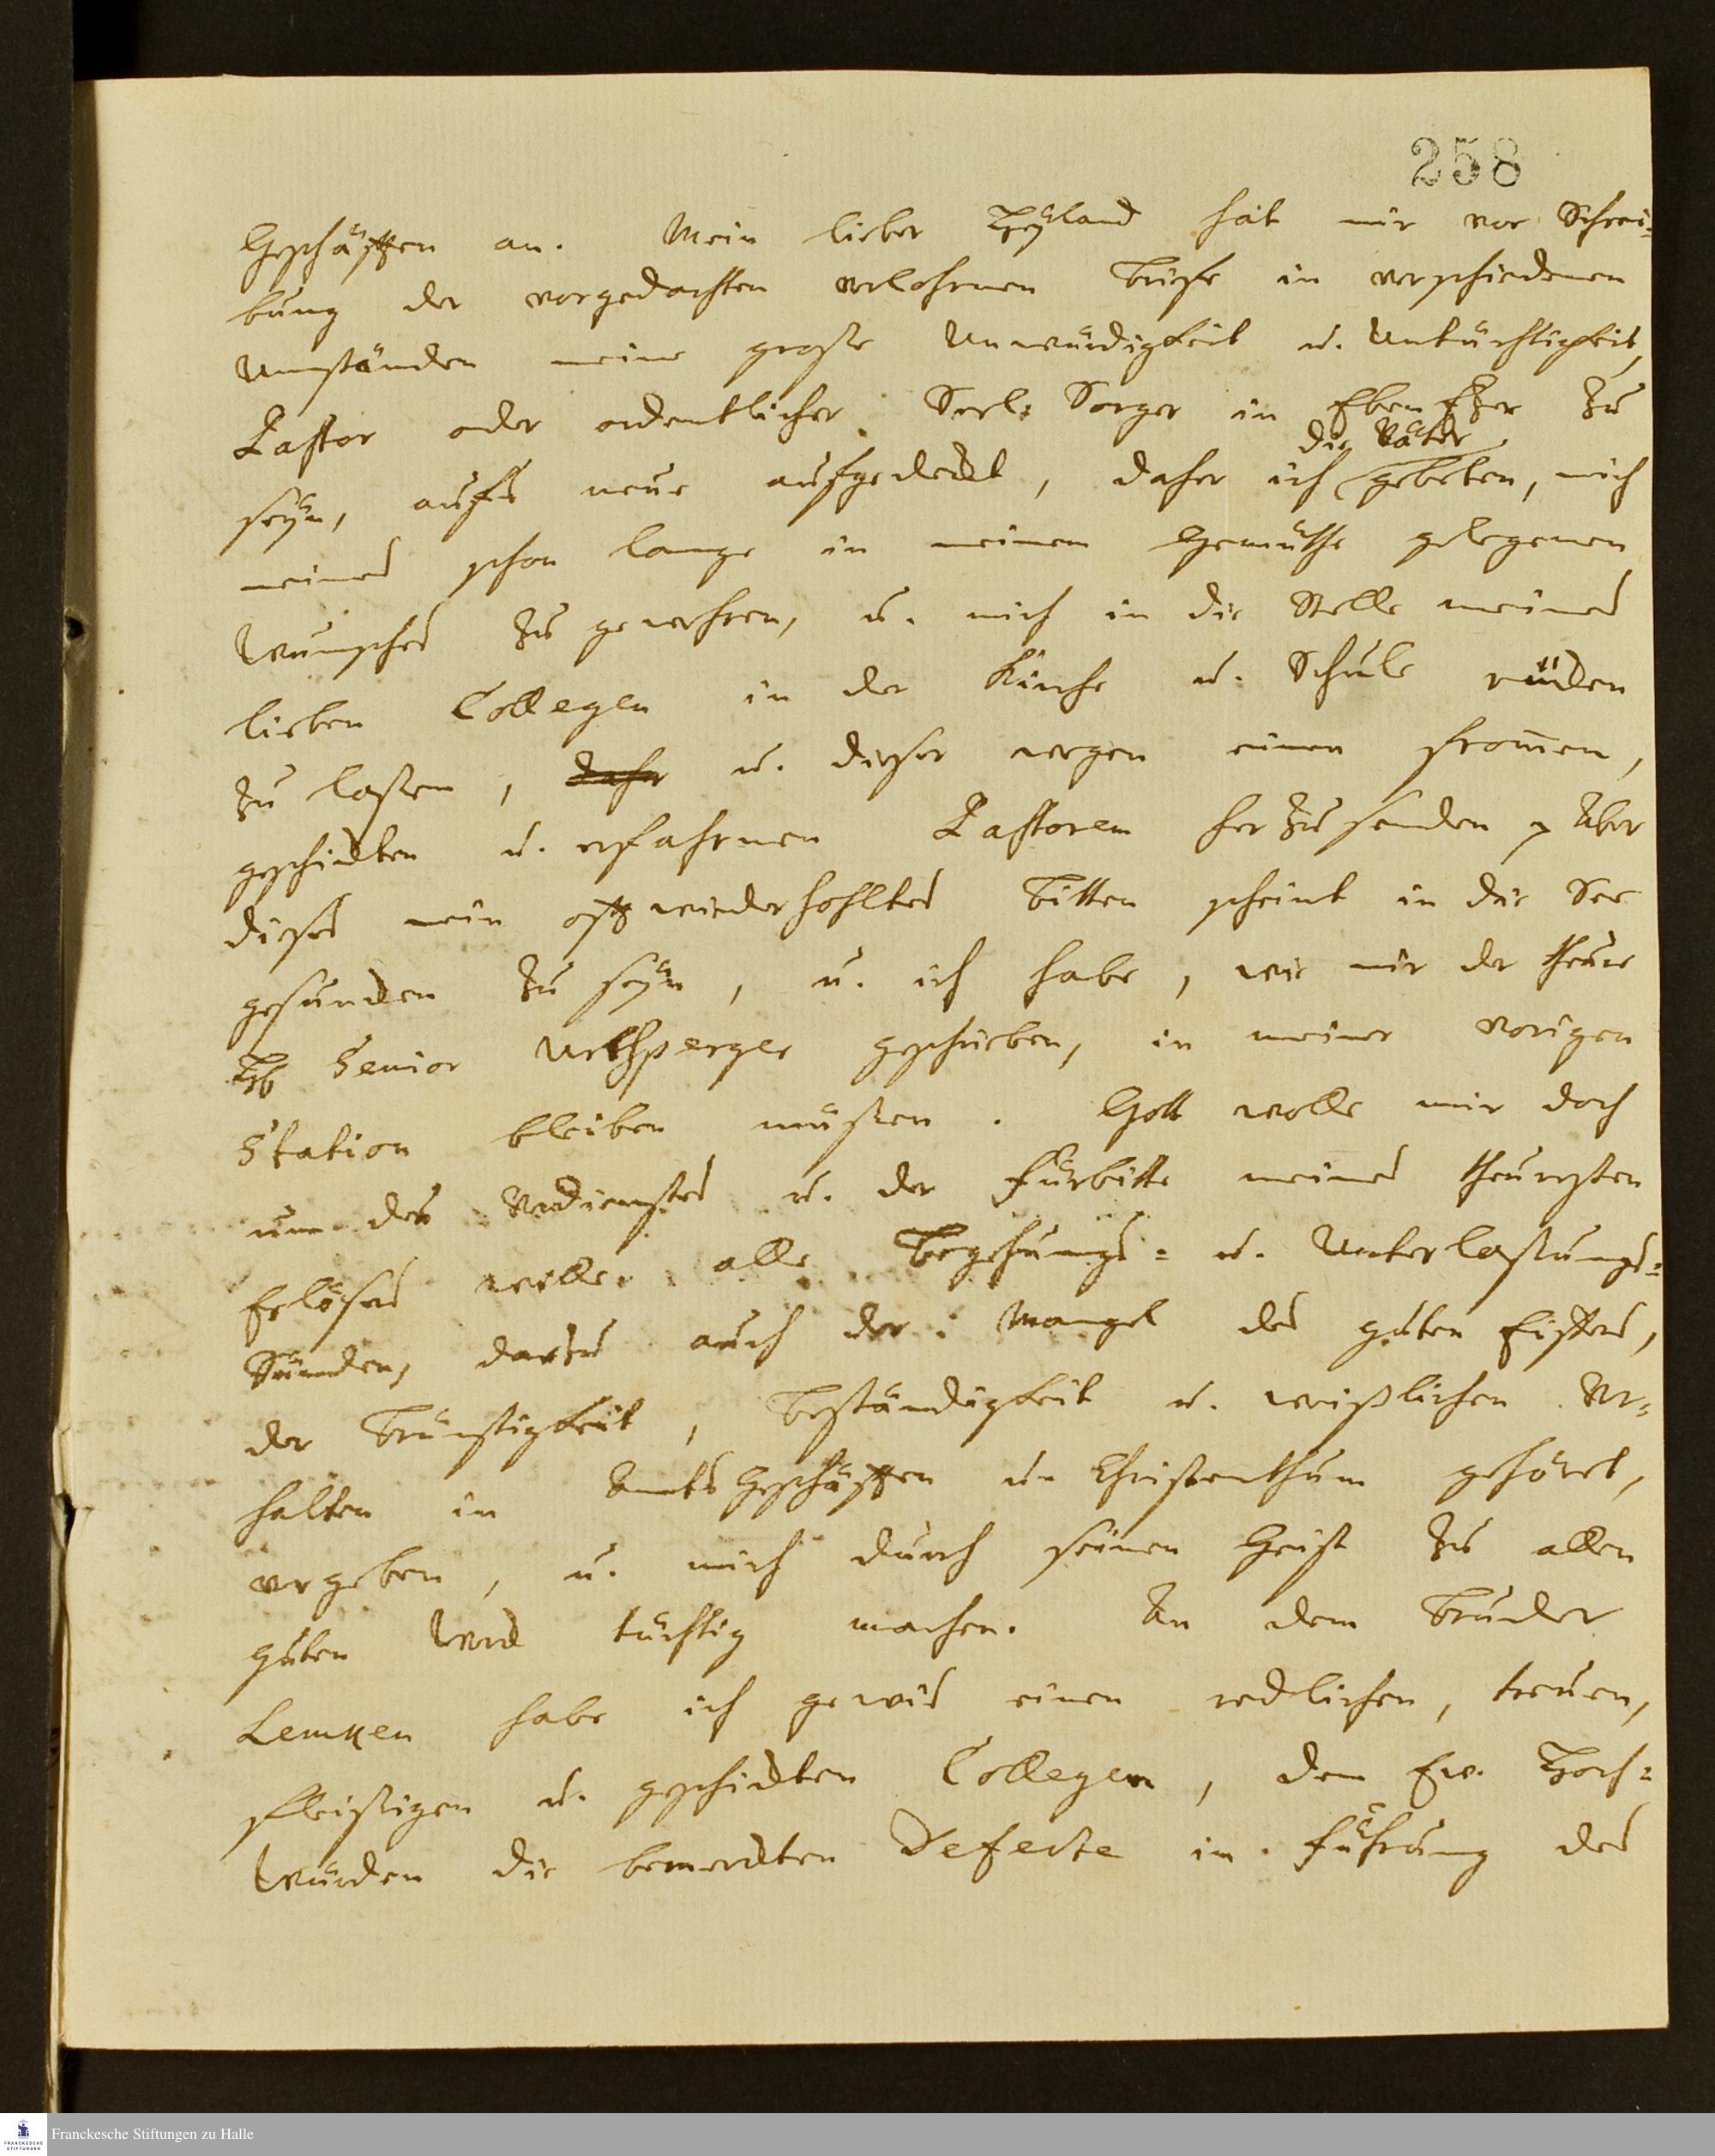 258
Geschäfften an. Mein lieber Heyland hat mir vor Schrei-
bung der vorgedachten verlohrnen Briefe in verschiedenen
Umständen meine große Unwürdigkeit u. Untüchtigkeit,
Pastor oder ordentlicher Seel-Sorger in EbenEzer zu
die Väter
seyn, aufs neue aufgedeckt, daher ich gebeten, mich
meines schon lange in meinem Gemüthe gelegenen
Wunsches zu gewehren, u. mich in die Stelle meines
lieben Collegen in der Kirche u. Schule rücken
zu laßen, daher u. dieser wegen einen frommen,
geschickten u. erfahrnen Pastorem herzusenden p Aber
dieses mein offt wiederhohltes Bitten scheint in die See
gesuncken zu seyn, u. ich habe, wie mir der theure
H Senior Urlsperger geschrieben, in meiner vorigen
Station bleiben müßen. Gott wolle mir doch
um des Verdienstes u. der Fürbitte meines theuresten
Erlösers willen alle Begehungs- u. Unterlaßungs-
Sünden, darzu auch der Mangel des guten Eiffers,
der Brünstigkeit, Beständigkeit u. weißlichen Ver-
halten in Amts Geschäfften u. Christenthum gehöret,
vergeben, u. mich durch seinen Geist zu allen
guten Werck tüchtig machen. An dem Bruder
Lemken habe ich gewis einen redlichen, treuen,
fleißigen u. geschickten Collegen, dem Ew. Hoch-
würden die bemerckten Defecte in Führung des
Franckesche Stiftungen zu Halle